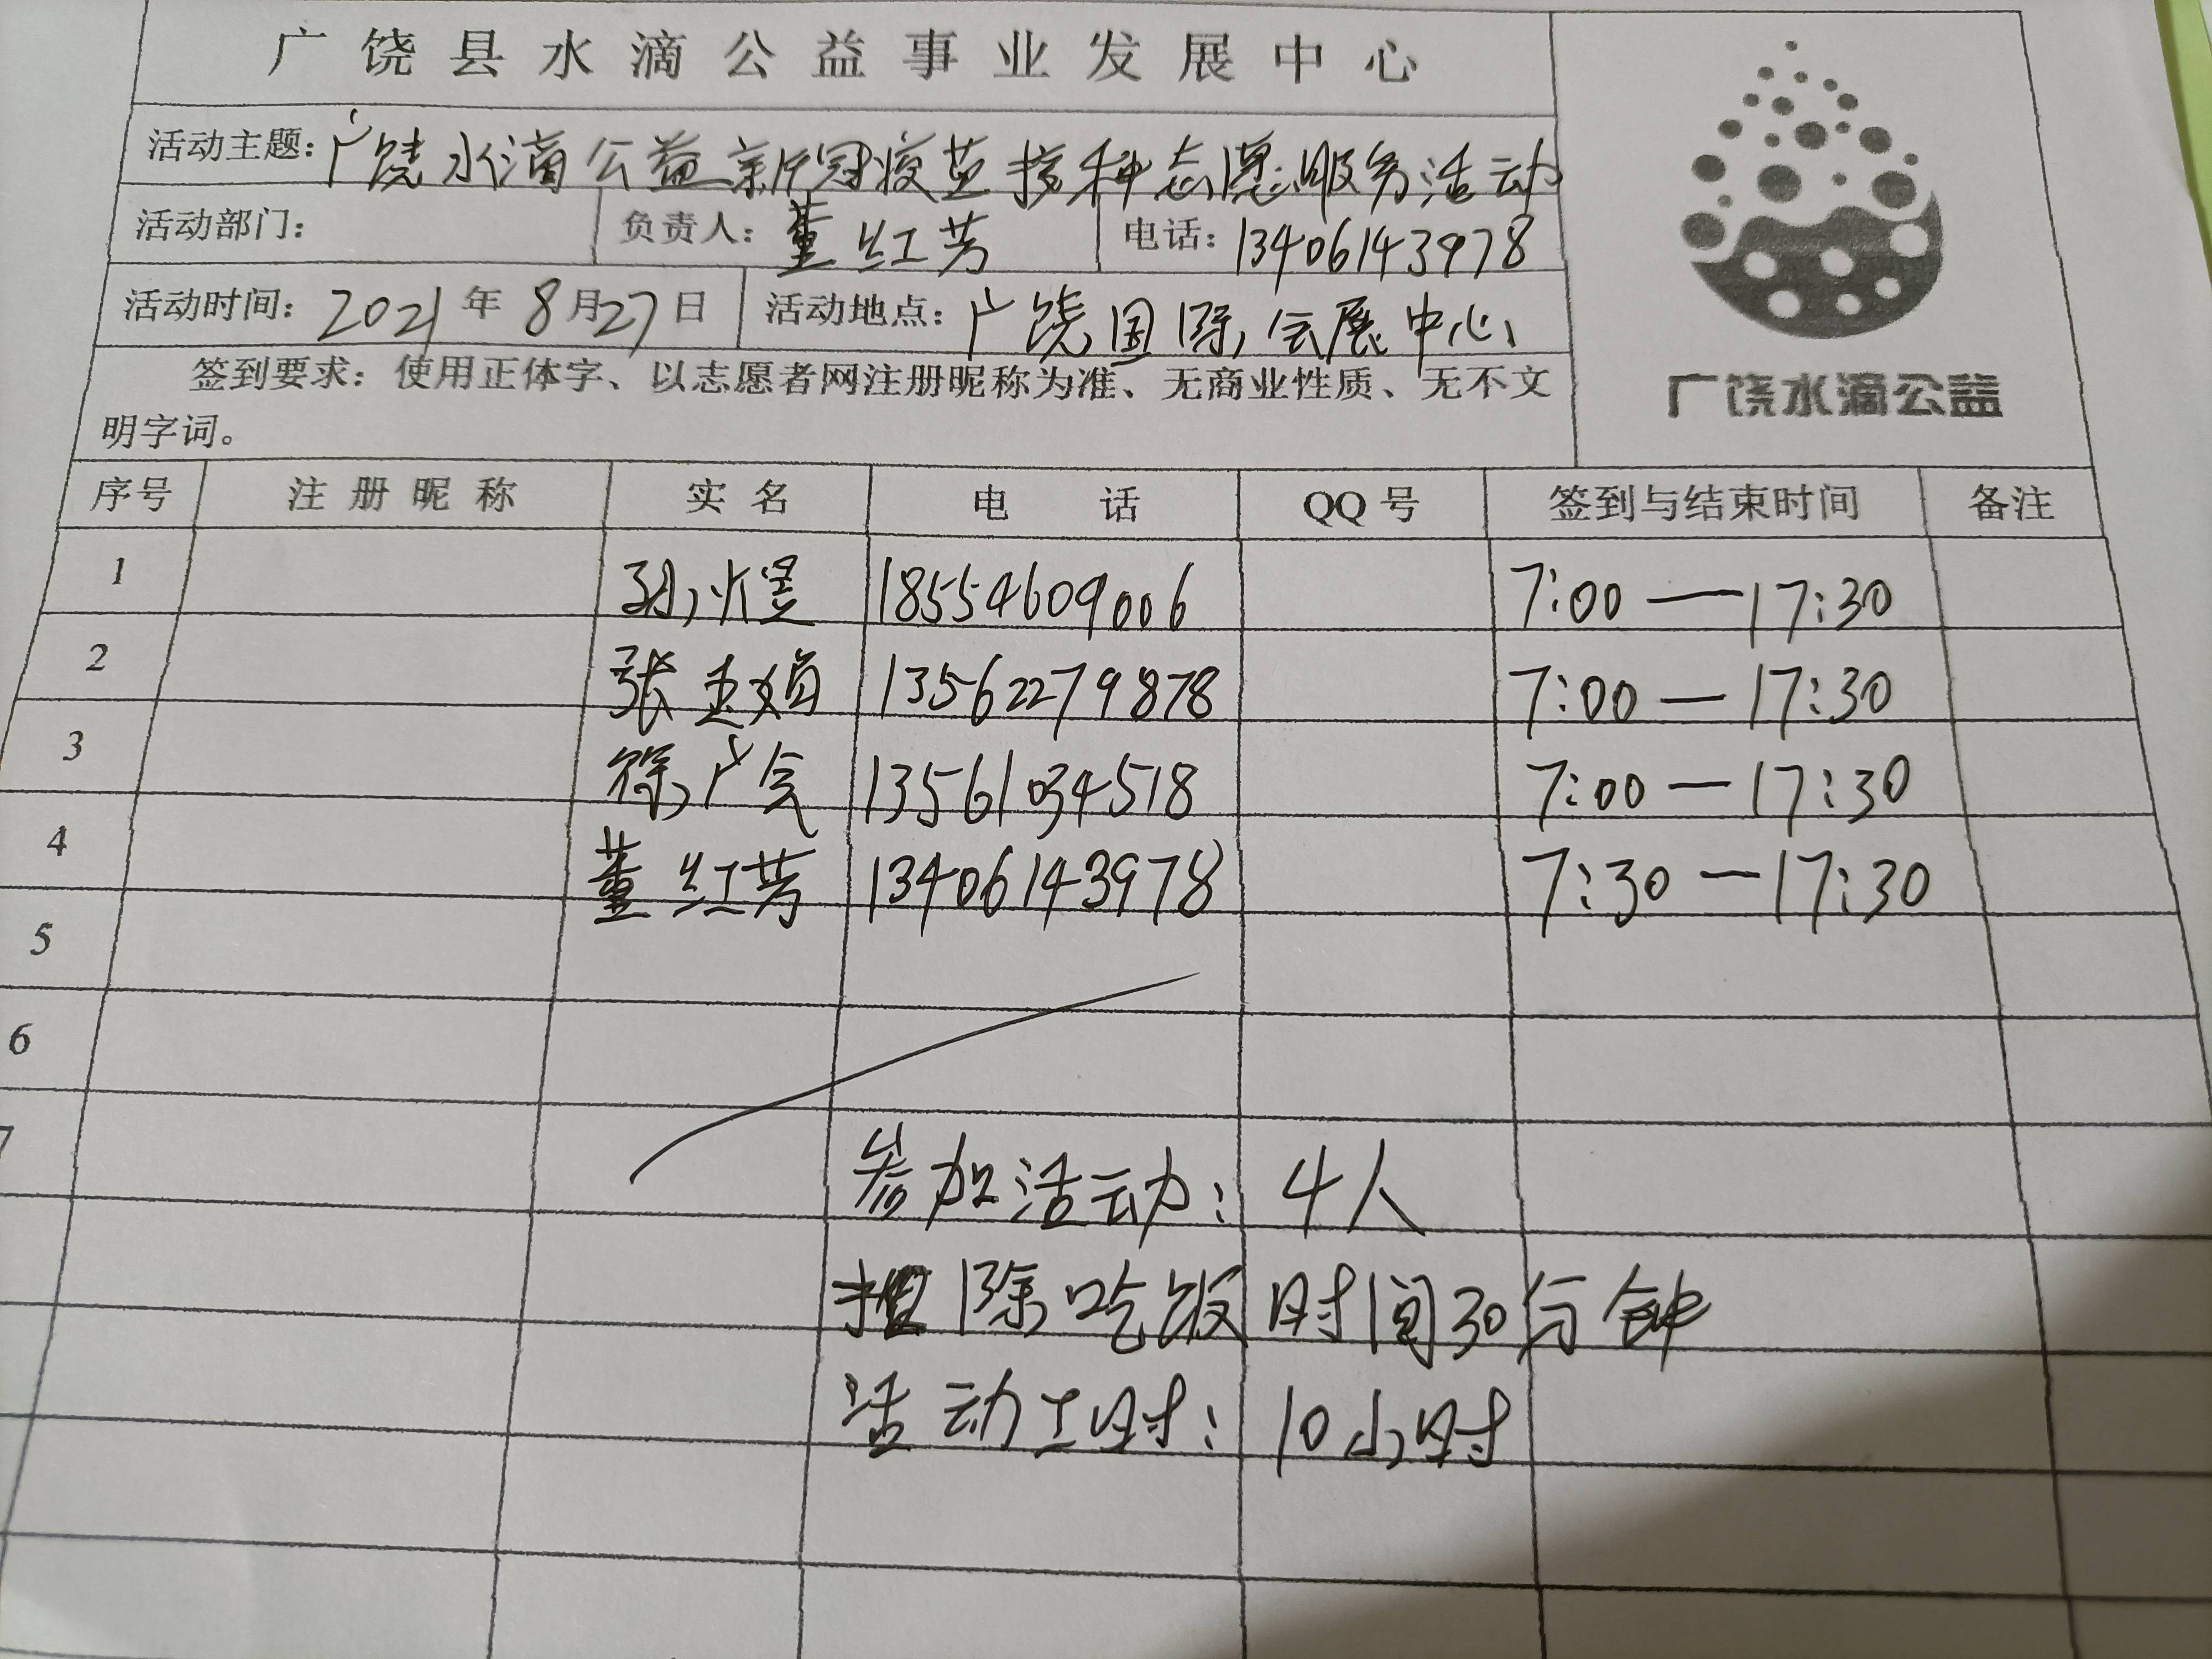 广饶县水滴公益事业发展中心
活动主题：广饶水滴公益新冠疫苗接种志愿服务活动
活动部门： 负责人：董红芳 电话：13406143978
活动时间：2021年8月27日 活动地点：广饶国际会展中心
签到要求：使用正体字、以志愿者网注册昵称为准、无商业性质、无不文
明字词。
广饶水滴公益
序号 注册昵称 实名 电话 QQ号 签到与结束时间 备注
1 孙煜 18554609006 7:00—17:30
2 张玉娟 13562279878 7:00—17:30
3 徐广会 13561034518 7:00—17:30
4 董红芳 13406143978 7:30—17:30
5
6
7 参加活动：4人
扣除吃饭时间30分钟
活动工时：10小时